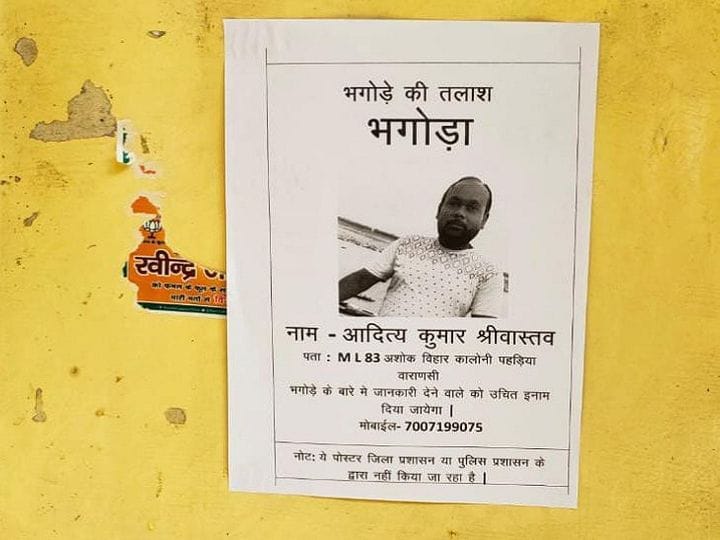 भगोड़े की तलाश
भगोड़ा
नाम - आदित्य कुमार श्रीवास्तव
पता : M L 83 अशोक विहार कालोनी पहड़िया
वाराणसी
भगोड़े के बारे मे जानकारी देने वाले को उचित इनाम
दिया जायेगा |
मोबाईल- 7007199075
नोट: ये पोस्टर जिला प्रशासन या पुलिस प्रशासन के
द्वारा नहीं किया जा रहा है |
रवीन्द्र
को कमल के फूल के
भारी मतों से